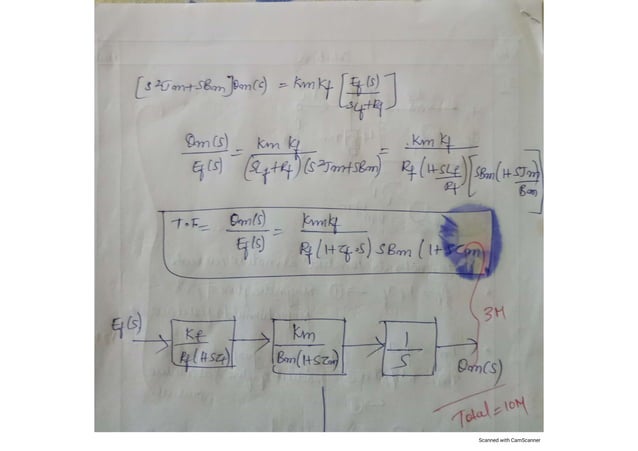 [S²Jm+SBm]θm(s) = Km Kf [Ef(s)/SLf+Rf]
θm(s)/Ef(s) = Km Kf/(SLf+Rf)(S²Jm+SBm) = Km Kf/Rf(1+SLf/Rf)[SBm(1+SJm/Bm)]
T.F = θm(s)/Ef(s) = KmKf/Rf(1+τf.s) SBm(1+Sτm
3M
Ef(s)
Kf/Rf(1+Sτf)
Km/Bm(1+Sτm)
1/S
θm(s)
Total = 10M
Scanned with CamScanner